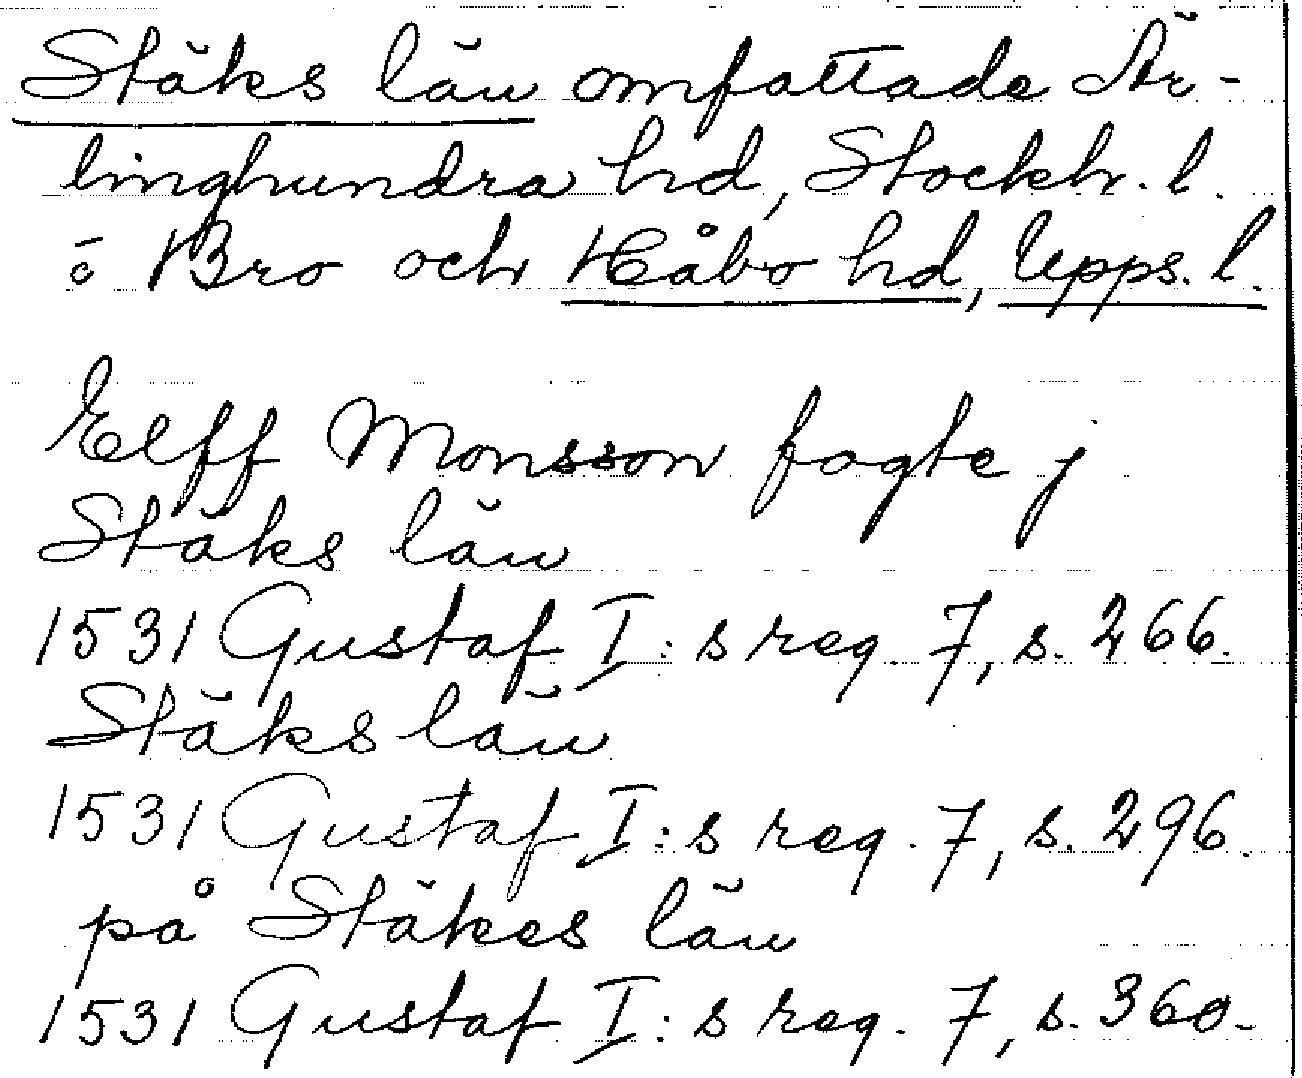 Stäks län omfattade Är-
linghundra hd, Stockh. l.
o Bro och Håbo hd, Upps. l.
Elff Monsson fogte j
Stäks län
1531 Gustaf I:s reg. 7, s. 266.
Stäks län
1531 Gustaf I:s reg. 7, s. 296.
på Stäkes län
1531 Gustaf I:s reg. 7, s. 360.